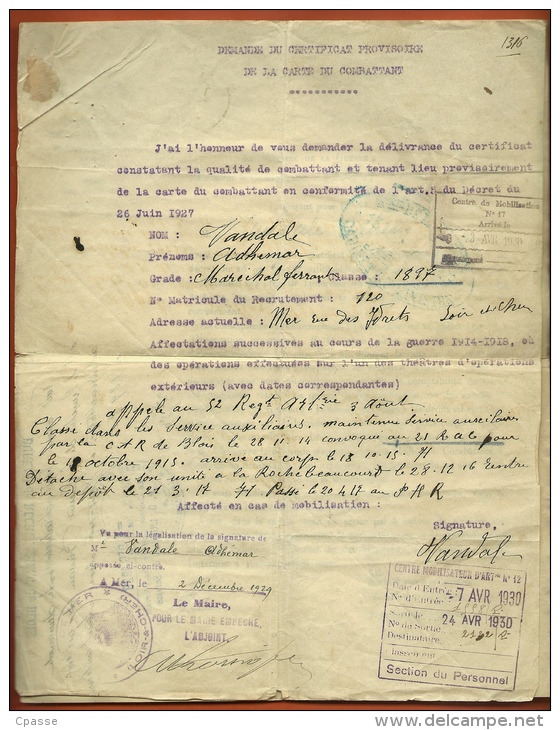 1316
DEMANDE DU CERTIFICAT PROVISOIRE
DE LA CARTE DU COMBATTANT
J'ai l'honneur de vous demander la délivrance du certificat
constatant la qualité de combattant et tenant lieu provisoirement
de la carte du combattant en conformité de l'art. du Décret du
26 Juin 1927
Centre de Mobilisation
N° 17
Arrivé le
AVR 1930
NOM : Vandale
Prénoms : Adhemar
Grade : Maréchal ferrant Classe : 1897
N° Matricule du Recrutement : 120
Adresse actuelle : Mer rue des Loir et Cher
Affectations successives au cours de la guerre 1914-1918, ou
des opérations effectuées sur l'un des théâtres d'opérations
extérieurs (avec dates correspondantes)
appelé au 52 Regt Art 3 Août
Classé dans les Service auxiliaires. maintenu Service auxiliaire
par la C R de Blois le 28 11 14 convoqué au 21 R pour
le 18 octobre 1915. arrive au corp le 18.10.15
Detaché avec son unité a la Rochebeaucourt le 28.12.16 Rentre
au depôt le 21.3.17 Passé le 20 4 17 au P H R
Affecté en cas de mobilisation :
Signature,
Vandale
Vu pour la légalisation de la signature de
Mr Vandale Adhemar
apposée ci-contre.
A Mer, le 2 Décembre 1929
Le Maire,
POUR LE MAIRE EMPÊCHÉ,
L'ADJOINT,
MER
LOIR-&-CHER
CENTRE MOBILISATEUR D'ARTie N° 12
Date d'Entrée 7 AVR 1930
N° d'Entrée
Sorti le 24 AVR 1930
N° de Sortie 2122
Destinataire
Section du Personnel
Cpasse
www.delcampe.net